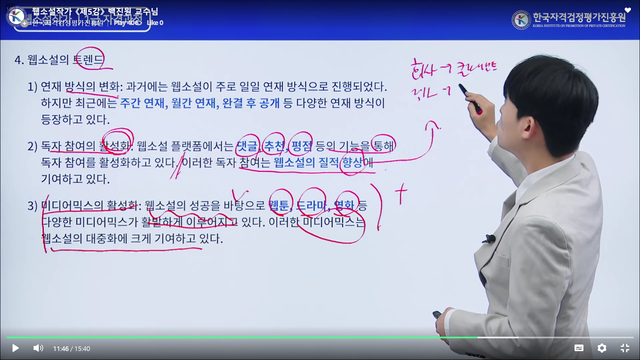 웹소설작가 《제5강》 백진원 교수님
한국자격검정평가진흥원
Play 404 Like 0
한국자격검정평가진흥원
KOREA INSTITUTE OF PROMOTION OF PRIVATE CERTIFICATION
4. 웹소설의 트렌드
1) 연재 방식의 변화: 과거에는 웹소설이 주로 일일 연재 방식으로 진행되었다.
하지만 최근에는 주간 연재, 월간 연재, 완결 후 공개 등 다양한 연재 방식이
등장하고 있다.
2) 독자 참여의 활성화: 웹소설 플랫폼에서는 댓글, 추천, 평점 등의 기능을 통해
독자 참여를 활성화하고 있다. 이러한 독자 참여는 웹소설의 질적 향상에
기여하고 있다.
3) 미디어믹스의 활성화: 웹소설의 성공을 바탕으로 웹툰, 드라마, 영화 등
다양한 미디어믹스가 활발하게 이루어지고 있다. 이러한 미디어믹스는
웹소설의 대중화에 크게 기여하고 있다.
회사 →
11:46 / 15:40